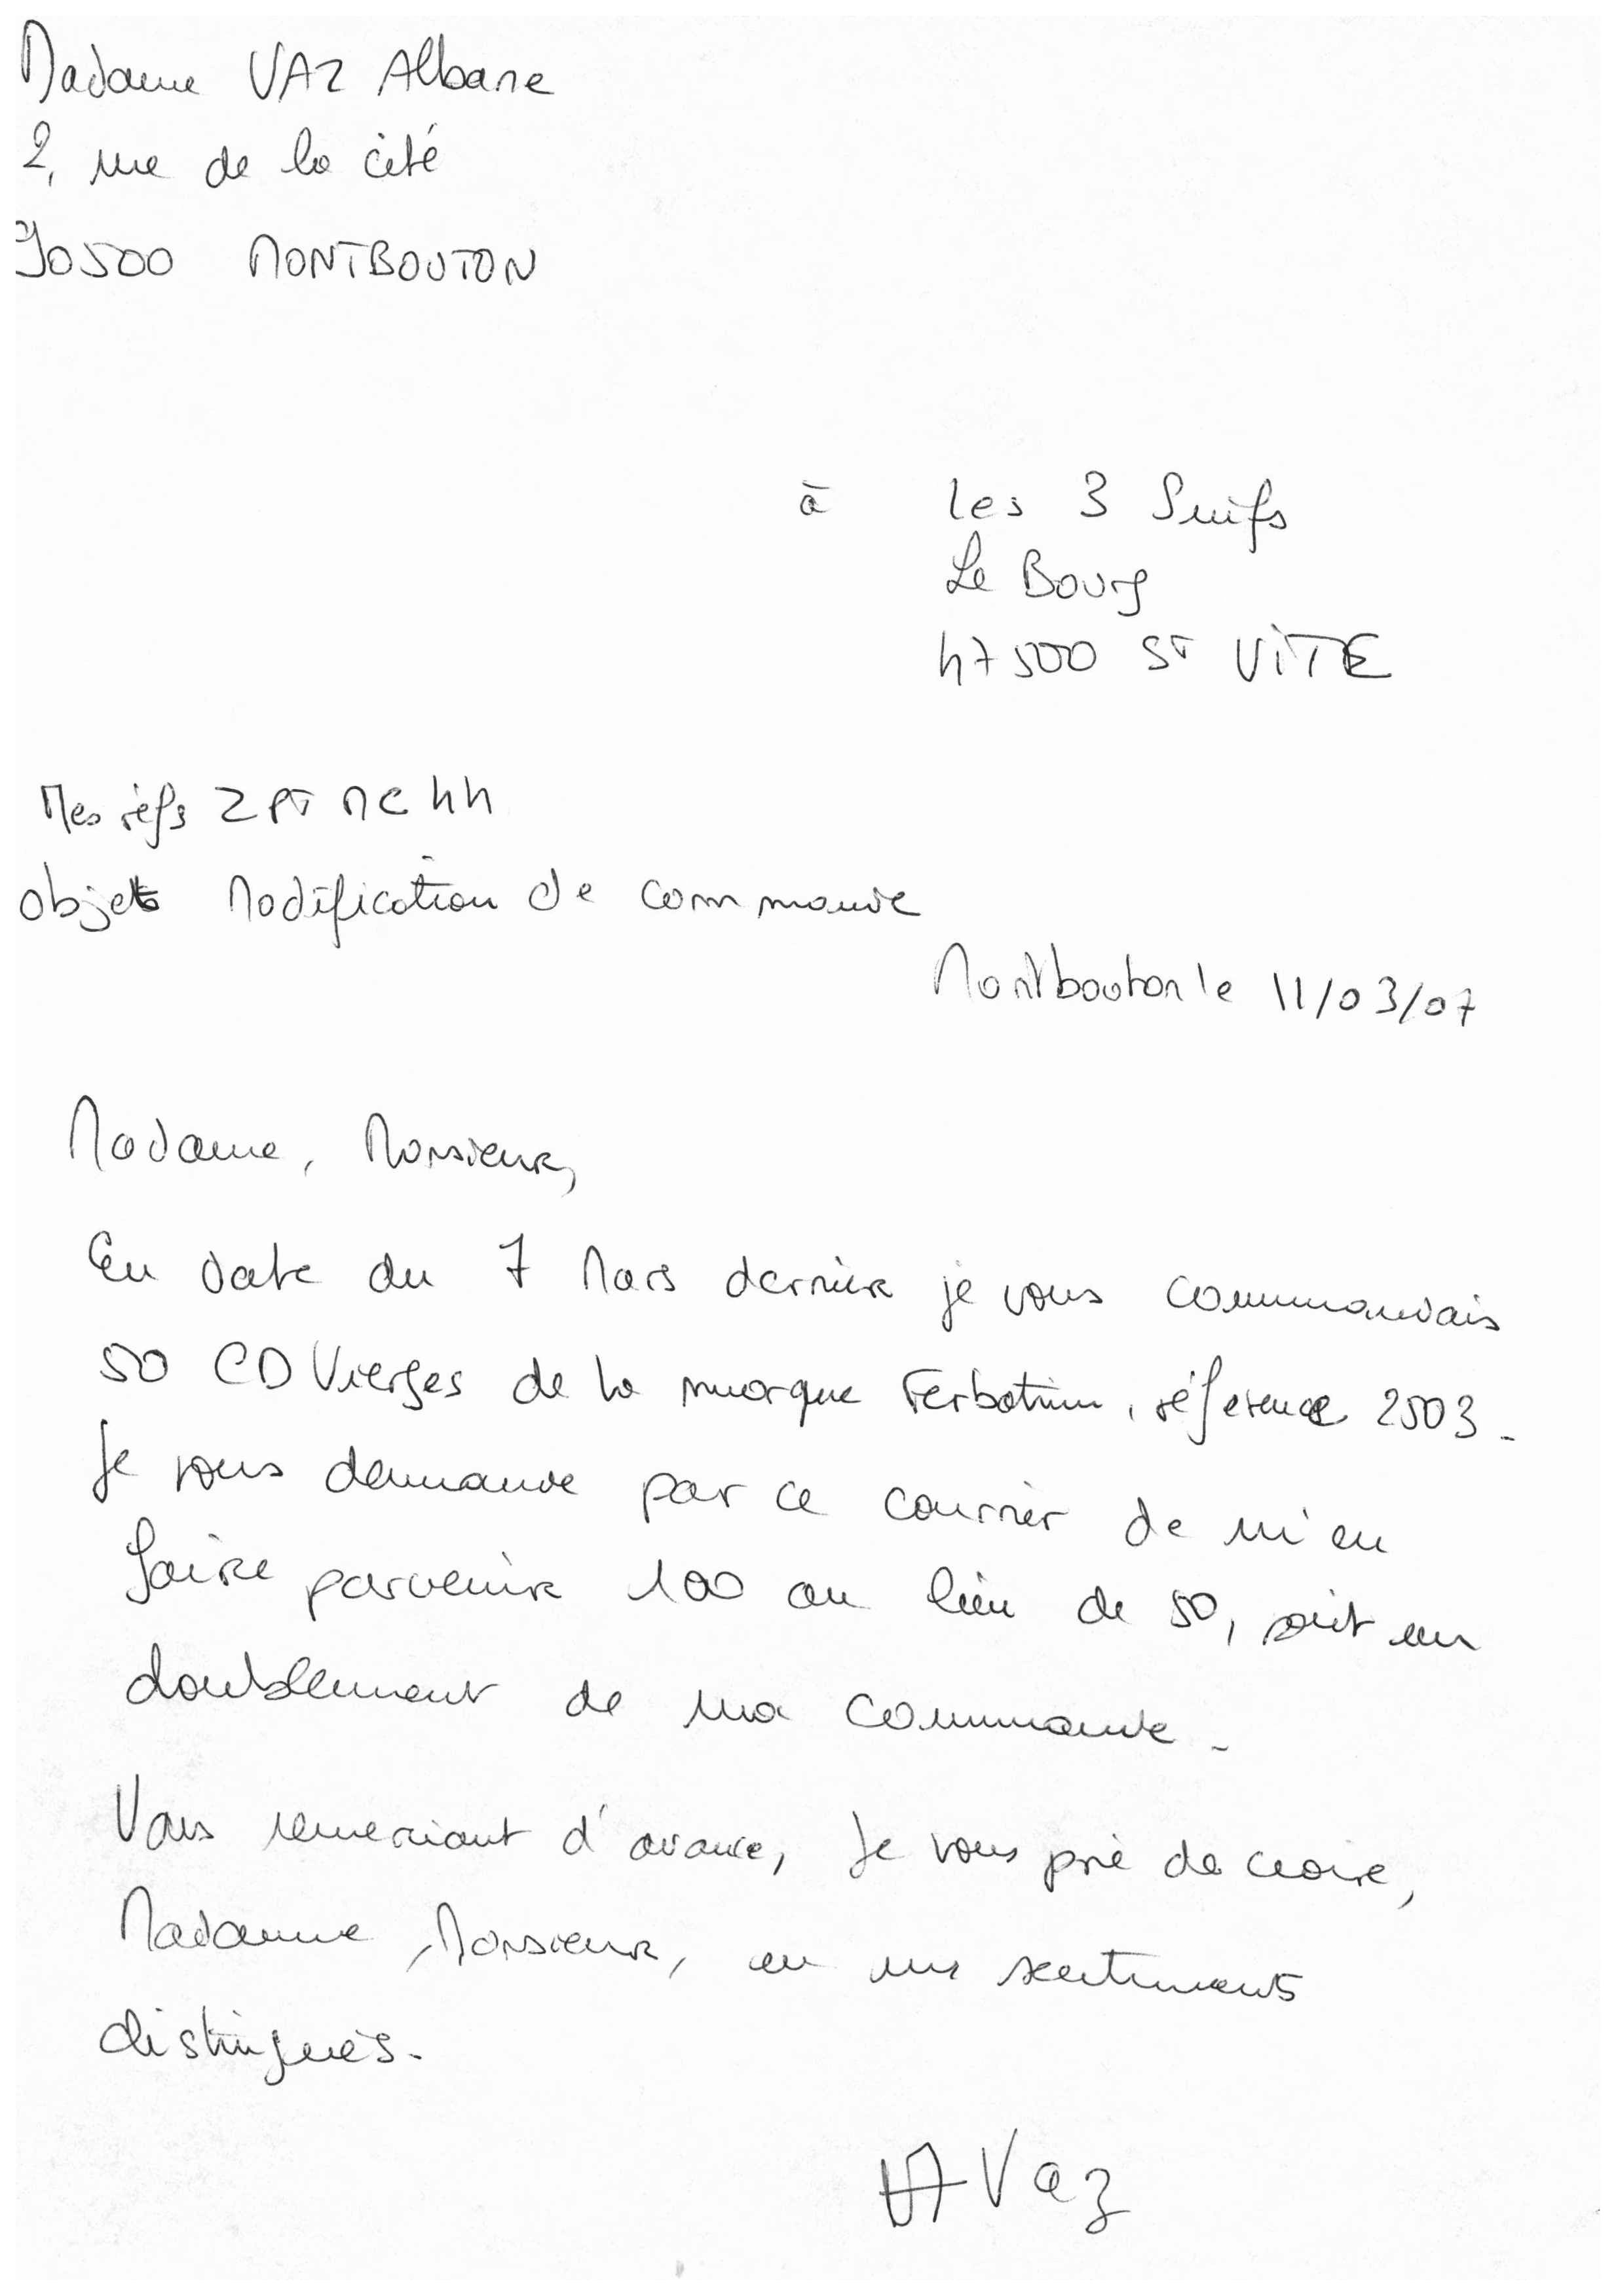 Madame VAZ Albane
2, rue de la cité
90500 MONTBOUTON
à les 3 Suifs
Le Bourg
47500 ST VITE
Mes réfs ZPTMC44
objet Modification de commande
Montbouton le 11/03/07
Madame, Monsieur,
En date du 7 Mars dernier je vous commandais
50 CD Vierges de la marque Ferbatim, référence 2503.
Je vous demande par ce courrier de m'en
faire parvenir 100 au lieu de 50, soit un
doublement de ma commande.
Vous remerciant d'avance, Je vous prie de croire,
Madame, Monsieur, en mes sentiments
distingués.
A Vaz